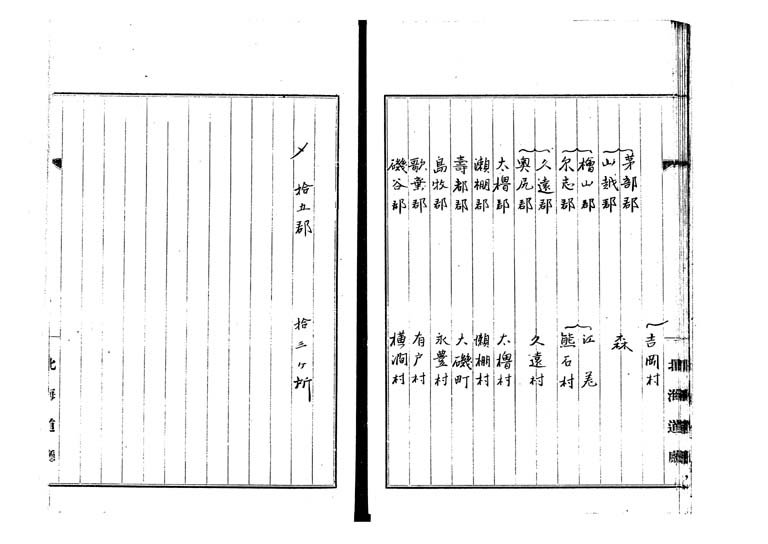 吉岡村
茅部郡
山越郡
森
檜山郡
爾志郡
江差
熊石村
久遠郡
奥尻郡
久遠村
太櫓郡 太櫓村
瀬棚郡 瀬棚村
壽都郡 大磯町
島牧郡 永豊村
歌棄郡 有戸村
磯谷郡 横澗村
〆 拾五郡 拾三ヶ所
北海道廳
北海道廳